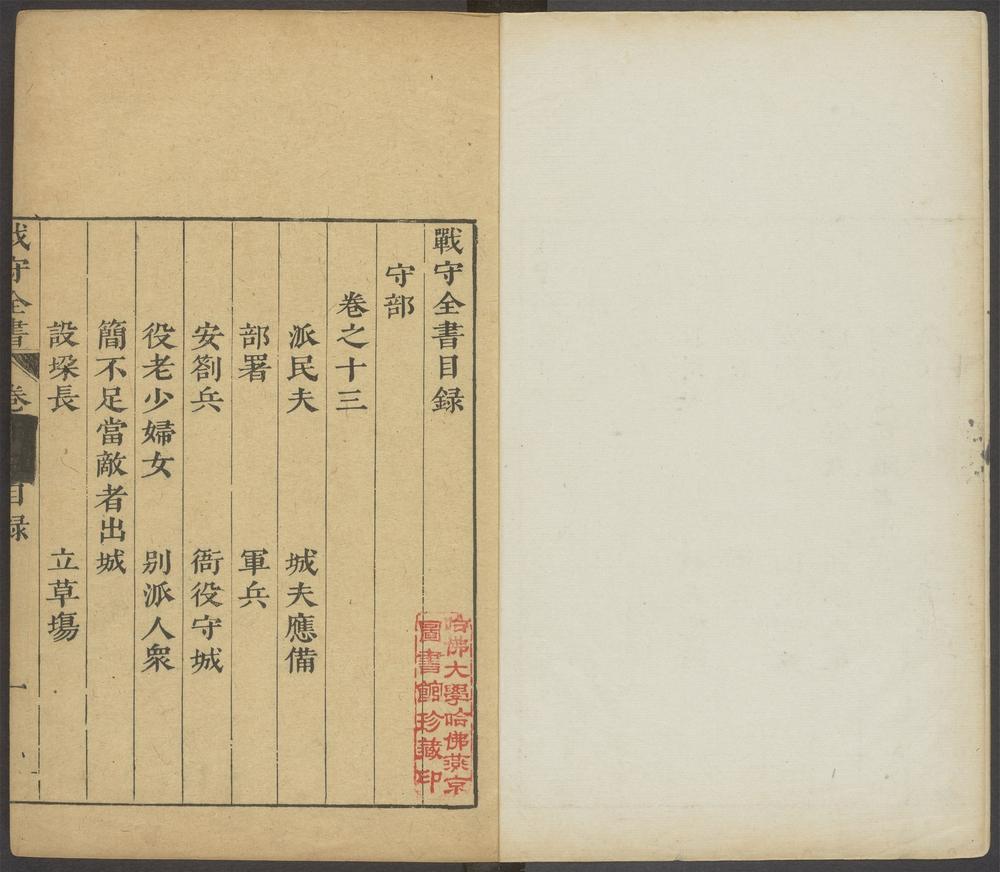 戰守全書目録
守部
卷之十三
派民夫　城夫應備
部署　軍兵
安劄兵　衙役守城
役老少婦女　别派人衆
簡不足當敵者出城
設垜長　立草塲
戰守全書　卷　目録　一
哈佛大學哈佛燕京
圖書館珍藏印